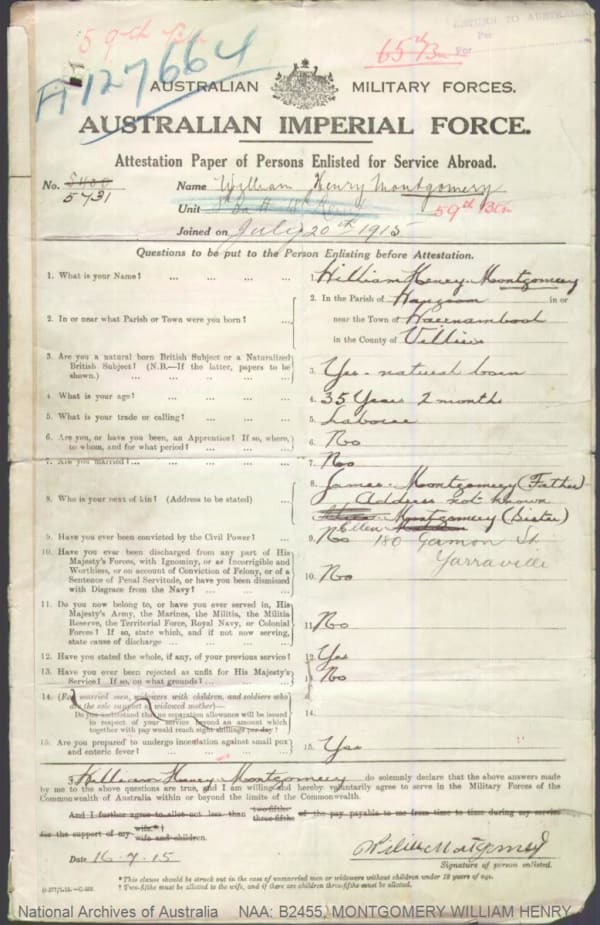 59th Bn
65th Bn
RETURN TO AUSTRALIA
Per
For
A127664
AUSTRALIAN MILITARY FORCES.
AUSTRALIAN IMPERIAL FORCE.
Attestation Paper of Persons Enlisted for Service Abroad.
No. 5400
5731
Name William Henry Montgomery
Unit
59th Bn
Joined on July 20th 1915
Questions to be put to the Person Enlisting before Attestation.
1. What is your Name? ... ... ... 1. William Henry Montgomery
2. In or near what Parish or Town were you born? ... 2. In the Parish of in or
near the Town of Warrnambool
in the County of Villiers
3. Are you a natural born British Subject or a Naturalized
British Subject? (N.B.—If the latter, papers to be
shown.) ... ... ... ... 3. Yes - natural born
4. What is your age? ... ... ... 4. 35 Years 2 months
5. What is your trade or calling? ... ... ... 5. Laborer
6. Are you, or have you been, an Apprentice? If so, where,
to whom, and for what period? ... ... ... 6. No
7. Are you married? ... ... ... 7. No
8. Who is your next of kin? (Address to be stated) ... 8. James Montgomery (Father)
Address not known
Montgomery (Sister)
Ellen
180 Gamon St
Yarraville
9. Have you ever been convicted by the Civil Power? ... 9. No
10. Have you ever been discharged from any part of His
Majesty's Forces, with Ignominy, or as Incorrigible and
Worthless, or on account of Conviction of Felony, or of a
Sentence of Penal Servitude, or have you been dismissed
with Disgrace from the Navy? ... ... ... 10. No
11. Do you now belong to, or have you ever served in, His
Majesty's Army, the Marines, the Militia, the Militia
Reserve, the Territorial Force, Royal Navy, or Colonial
Forces? If so, state which, and if not now serving,
state cause of discharge ... ... ... 11. No
12. Have you stated the whole, if any, of your previous service? 12. Yes
13. Have you ever been rejected as unfit for His Majesty's
Service? If so, on what grounds? ... ... 13. No
14. (For married men, widowers with children, and soldiers who
are the sole support of widowed mother)—
Do you understand that no separation allowance will be issued
in respect of your service beyond an amount which
together with pay would reach eight shillings per day? 14.
15. Are you prepared to undergo inoculation against small pox
and enteric fever? ... ... ... 15. Yes
I, William Henry Montgomery do solemnly declare that the above answers made
by me to the above questions are true, and I am willing and hereby voluntarily agree to serve in the Military Forces of the
Commonwealth of Australia within or beyond the limits of the Commonwealth.
And I further agree to allot not less than two-fifths three-fifths of the pay payable to me from time to time during my service
for the support of my wife.* wife and children.
Date 16.7.15
Signature of person enlisted.
* This clause should be struck out in the case of unmarried men or widowers without children under 18 years of age.
† Two-fifths must be allotted to the wife, and if there are children three-fifths must be allotted.
National Archives of Australia NAA: B2455, MONTGOMERY WILLIAM HENRY